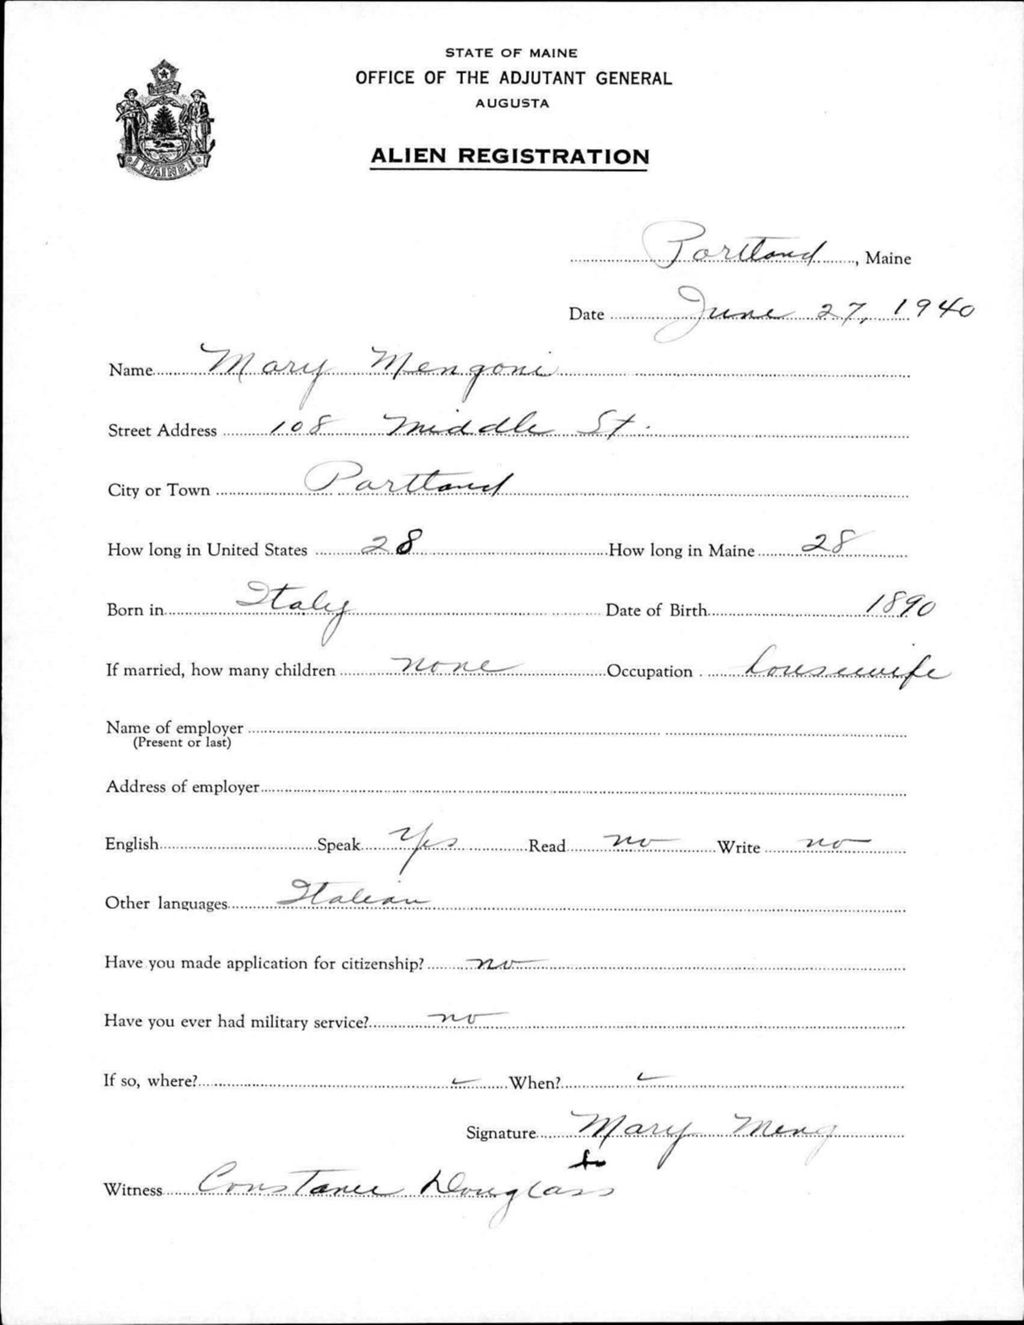 STATE OF MAINE
OFFICE OF THE ADJUTANT GENERAL
AUGUSTA
ALIEN REGISTRATION
MAINE
Portland, Maine
Date June 27, 1940
Name Mary Mengoni
Street Address 108 Middle St.
City or Town Portland
How long in United States 28 How long in Maine 28
Born in Italy Date of Birth 1890
If married, how many children none Occupation housewife
Name of employer
(Present or last)
Address of employer
English Speak Yes Read no Write no
Other languages Italian
Have you made application for citizenship? no
Have you ever had military service? no
If so, where? When?
Signature Mary Meng
Witness Constance Douglass